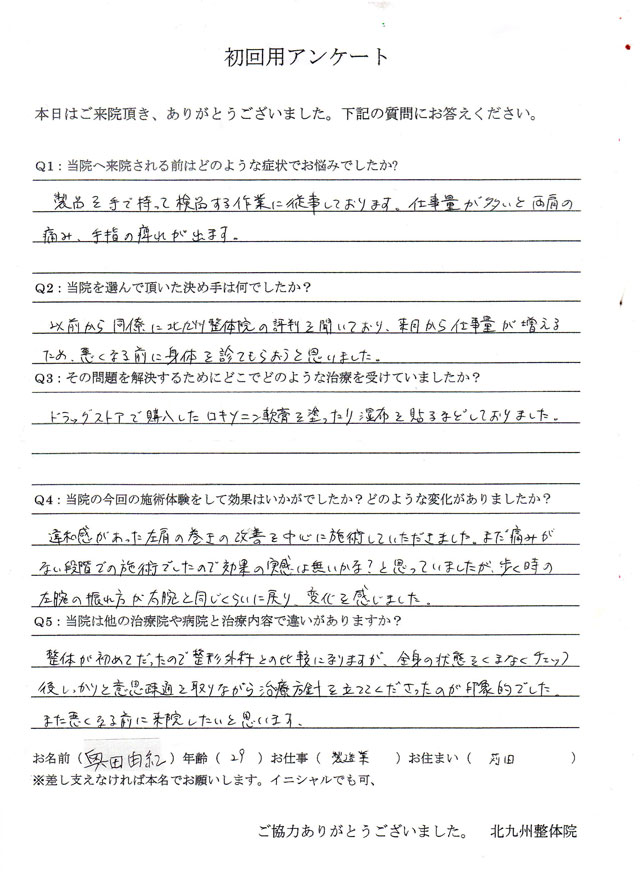 初回用アンケート
本日はご来院頂き、ありがとうございました。下記の質問にお答えください。
Q1：当院へ来院される前はどのような症状でお悩みでしたか?
製品を手で持って検品する作業に従事しております。仕事量が多いと両肩の
痛み、手指の痺れが出ます。
Q2：当院を選んで頂いた決め手は何でしたか？
以前から同僚に北九州整体院の評判を聞いており、来月から仕事量が増える
ため、悪くなる前に身体を診てもらおうと思いました。
Q3：その問題を解決するためにどこでどのような治療を受けていましたか？
ドラッグストアで購入したロキソニン軟膏を塗ったり湿布を貼るなどしておりました。
Q4：当院の今回の施術体験をして効果はいかがでしたか？どのような変化がありましたか？
違和感があった左肩の巻きの改善を中心に施術していただきました。まだ痛みが
ない段階での施術でしたので効果の実感は無いかな？と思っていましたが、歩く時の
左腕の振れ方が右腕と同じくらいに戻り、変化を感じました。
Q5：当院は他の治療院や病院と治療内容で違いがありますか？
整体が初めてだったので整形外科との比較になりますが、全身の状態をくまなくチェック
後しっかりと意思疎通を取りながら治療方針を立ててくださったのが印象的でした。
また悪くなる前に来院したいと思います。
お名前（奥田由紀）年齢（29）お仕事（製造業）お住まい（苅田）
※差し支えなければ本名でお願いします。イニシャルでも可、
ご協力ありがとうございました。 北九州整体院